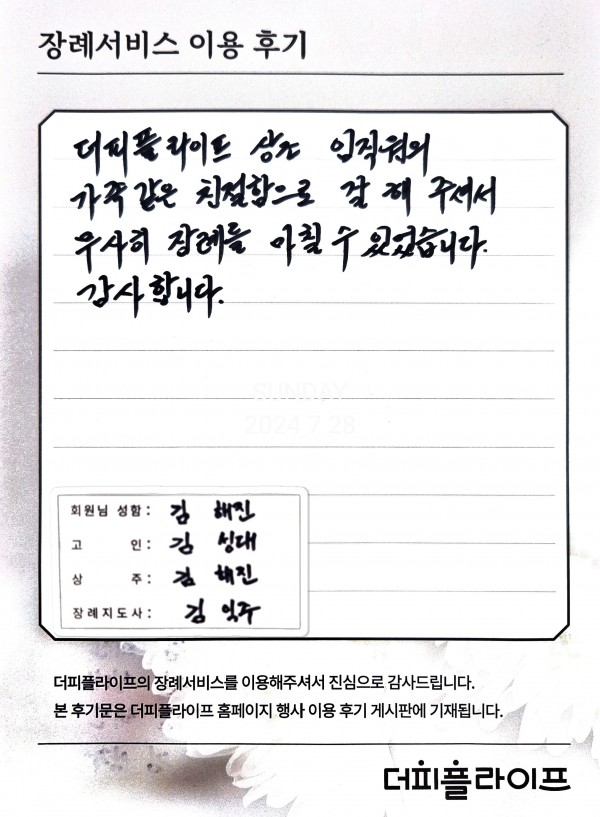 장례서비스 이용 후기
더피플라이프 상조 임직원의
가족같은 친절함으로 잘 해 주셔서
무사히 장례를 마칠 수 있었습니다.
감사합니다.
SUNDAY
2024 7 28
회원님 성함: 김 해진
고 인: 김 성대
상 주: 김 해진
장례지도사: 김 익주
더피플라이프의 장례서비스를 이용해주셔서 진심으로 감사드립니다.
본 후기문은 더피플라이프 홈페이지 행사 이용 후기 게시판에 기재됩니다.
더피플라이프